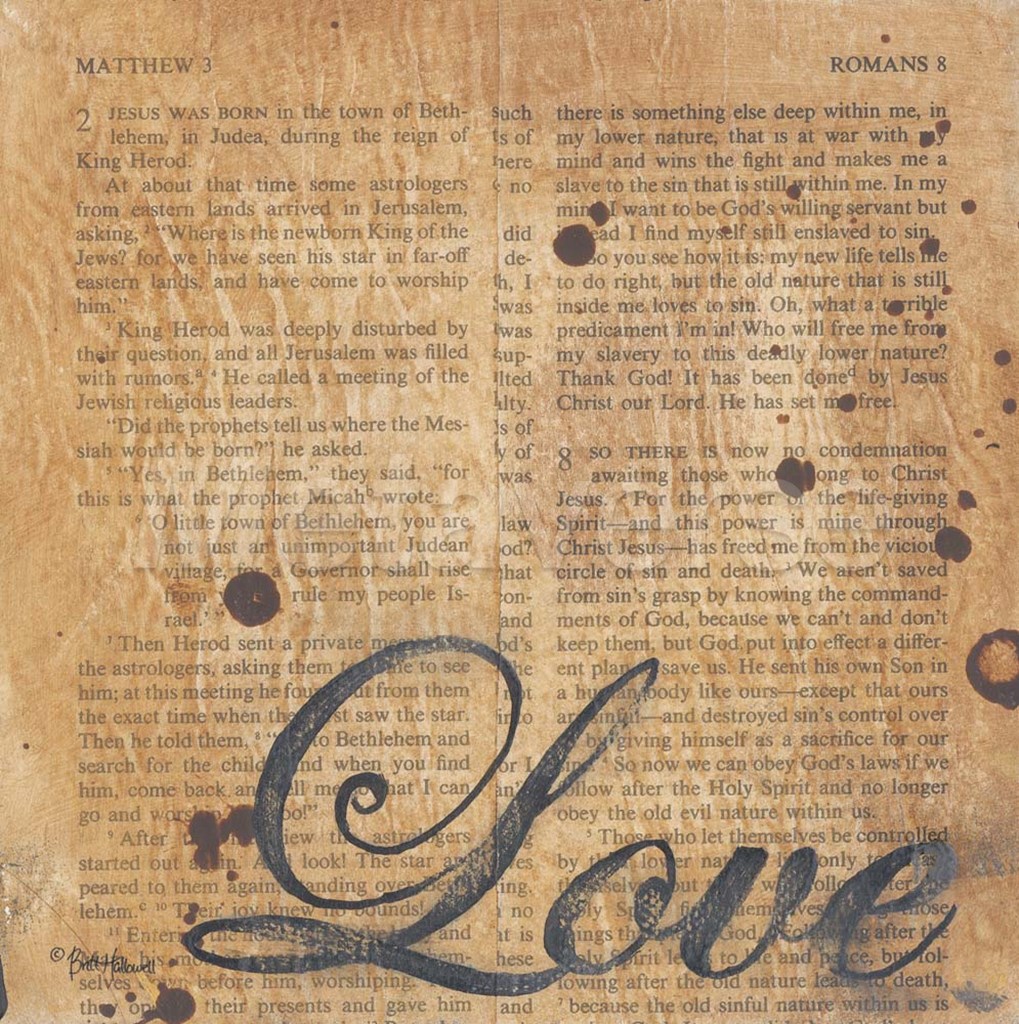 MATTHEW 3
2 JESUS WAS BORN in the town of Beth-
lehem, in Judea, during the reign of
King Herod.
At about that time some astrologers
from eastern lands arrived in Jerusalem,
asking, ² “Where is the newborn King of the
Jews? for we have seen his star in far-off
eastern lands, and have come to worship
him.”
³ King Herod was deeply disturbed by
their question, and all Jerusalem was filled
with rumors.ᵃ ⁴ He called a meeting of the
Jewish religious leaders.
“Did the prophets tell us where the Mes-
siah would be born?” he asked.
⁵ “Yes, in Bethlehem,” they said, “for
this is what the prophet Micahᵇ wrote:
⁶ ‘O little town of Bethlehem, you are
not just an unimportant Judean
village, for a Governor shall rise
from rule my people Is-
rael.’ ”
⁷ Then Herod sent a private
the astrologers, asking them to see
him; at this meeting he from them
the exact time when the saw the star.
Then he told them, ⁸ to Bethlehem and
search for the child. nd when you find
him, come back and ll me that I can
go and worship oo!”
⁹ After astrologers
started out again. And look! The star
peared to them again, standing over
lehem.ᶜ ¹⁰ Their joy knew no bounds!
¹¹ and
his
selves before him, worshiping.
their presents and gave him
such
ts of
here
no
did
de-
h, I
was
was
sup-
lted
lty.
s of
y of
was
law
od?
that
con-
and
od's
he
not
into
or I
an
es
ing.
no
at is
hese
and
ROMANS 8
there is something else deep within me, in
my lower nature, that is at war with my
mind and wins the fight and makes me a
slave to the sin that is still within me. In my
mind I want to be God’s willing servant but
ead I find myself still enslaved to sin.
So you see how it is: my new life tells me
to do right, but the old nature that is still
inside me loves to sin. Oh, what a terrible
predicament I’m in! Who will free me from
my slavery to this deadly lower nature?
Thank God! It has been doneᵈ by Jesus
Christ our Lord. He has set me free.
8 SO THERE IS now no condemnation
awaiting those who ong to Christ
Jesus. ² For the power of the life-giving
Spirit—and this power is mine through
Christ Jesus—has freed me from the vicious
circle of sin and death. ³ We aren’t saved
from sin’s grasp by knowing the command-
ments of God, because we can’t and don’t
keep them, but God put into effect a differ-
ent plan save us. He sent his own Son in
a human body like ours—except that ours
are sinful—and destroyed sin’s control over
by giving himself as a sacrifice for our
⁴ So now we can obey God’s laws if we
follow after the Holy Spirit and no longer
obey the old evil nature within us.
⁵ Those who let themselves be controlled
by their lower only to
after the
those
God. Following after the
Holy Spirit to life and peace, but fol-
lowing after the old nature leads to death,
⁷ because the old sinful nature within us is
Love
© Britt Hallowell